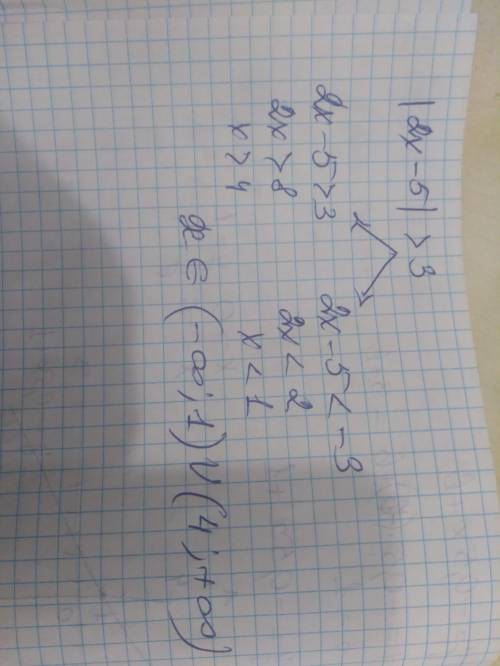 |2x - 5| > 3
2x - 5 > 3
2x > 8
x > 4
2x - 5 < -3
2x < 2
x < 1
x ∈ (-∞; 1) ∪ (4; +∞)